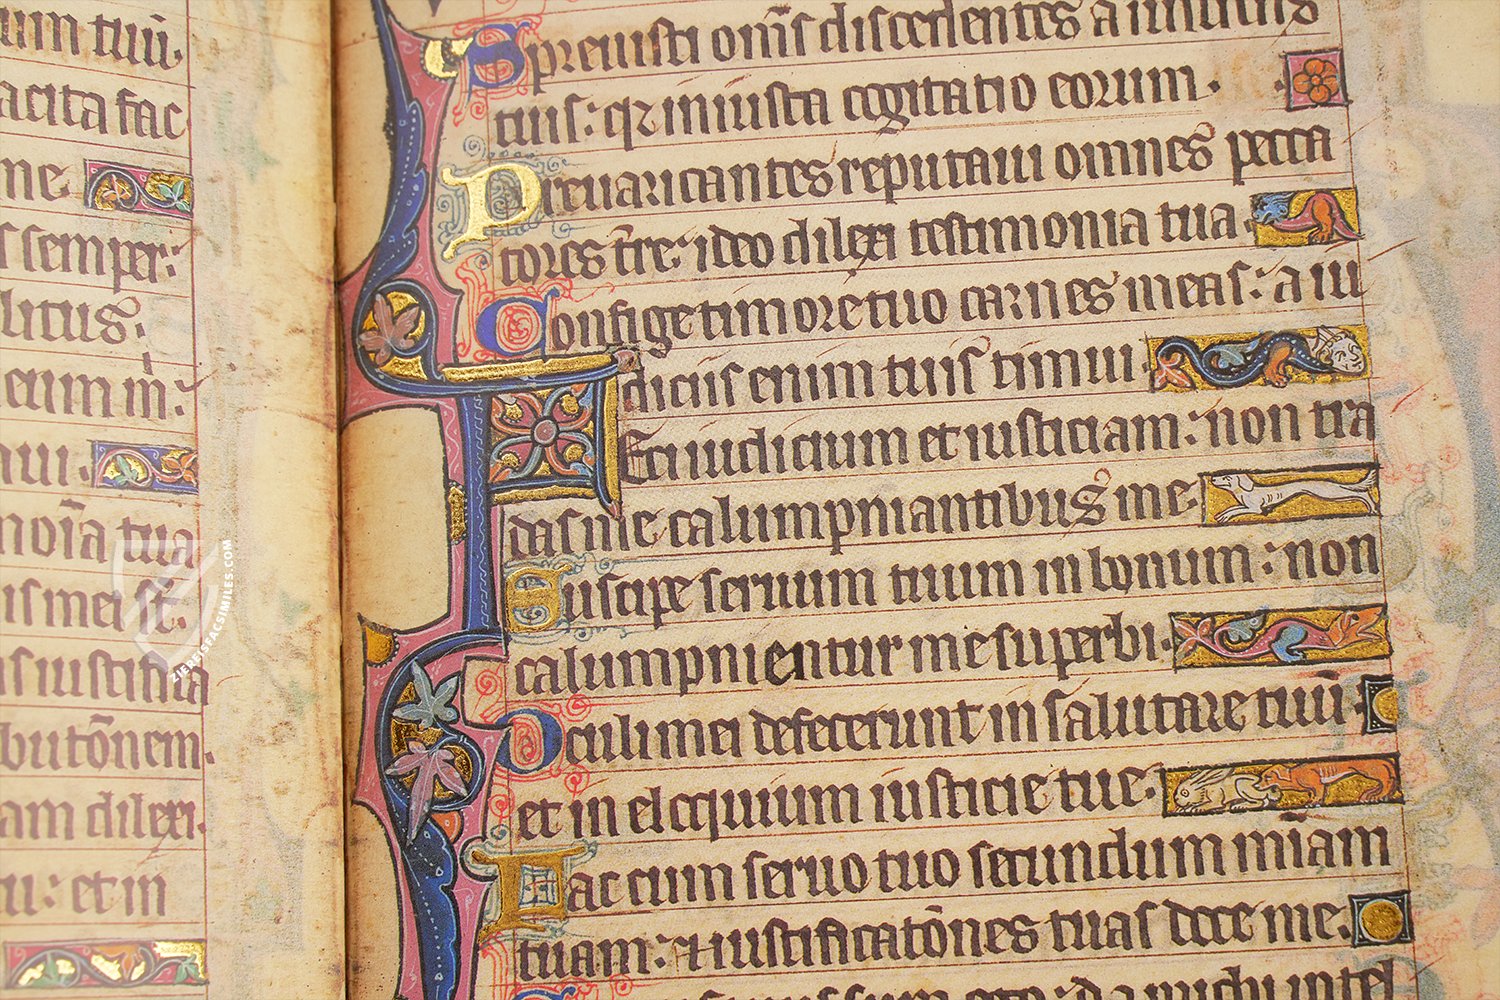 um tuu.
acita fac
me
ſ ſemper:
litus:
eum in:
uii.
noīa tua
iſ mei ſt.
ſ iuſtifica
butōnem.
am dilexi.
u: et in
Spreuiſti om̄ſ diſcedentes a iudiciis
tuiſ: qr iniuſta cogitatio eorum.
Preuaricantes reputaui omnes pecca
tores t̄re: ideo dilexi teſtimonia tua.
Confige timore tuo carnes meaſ: a iu
diciiſ enim tuiſ timui.
Feci iudicium et iuſticiam: non tra
daſ me calumpniantibus me.
Suſcipe ſeruum tuum in bonum: non
calumpnientur me ſuperbi.
Oculi mei defecerunt in ſalutare tuū.
et in eloquium iuſticie tue.
Fac cum ſeruo tuo ſecundum miām
tuam: et iuſtificatōnes tuaſ doce me.
ſum ego: da michi intel
ZIEREISFACSIMILES.COM